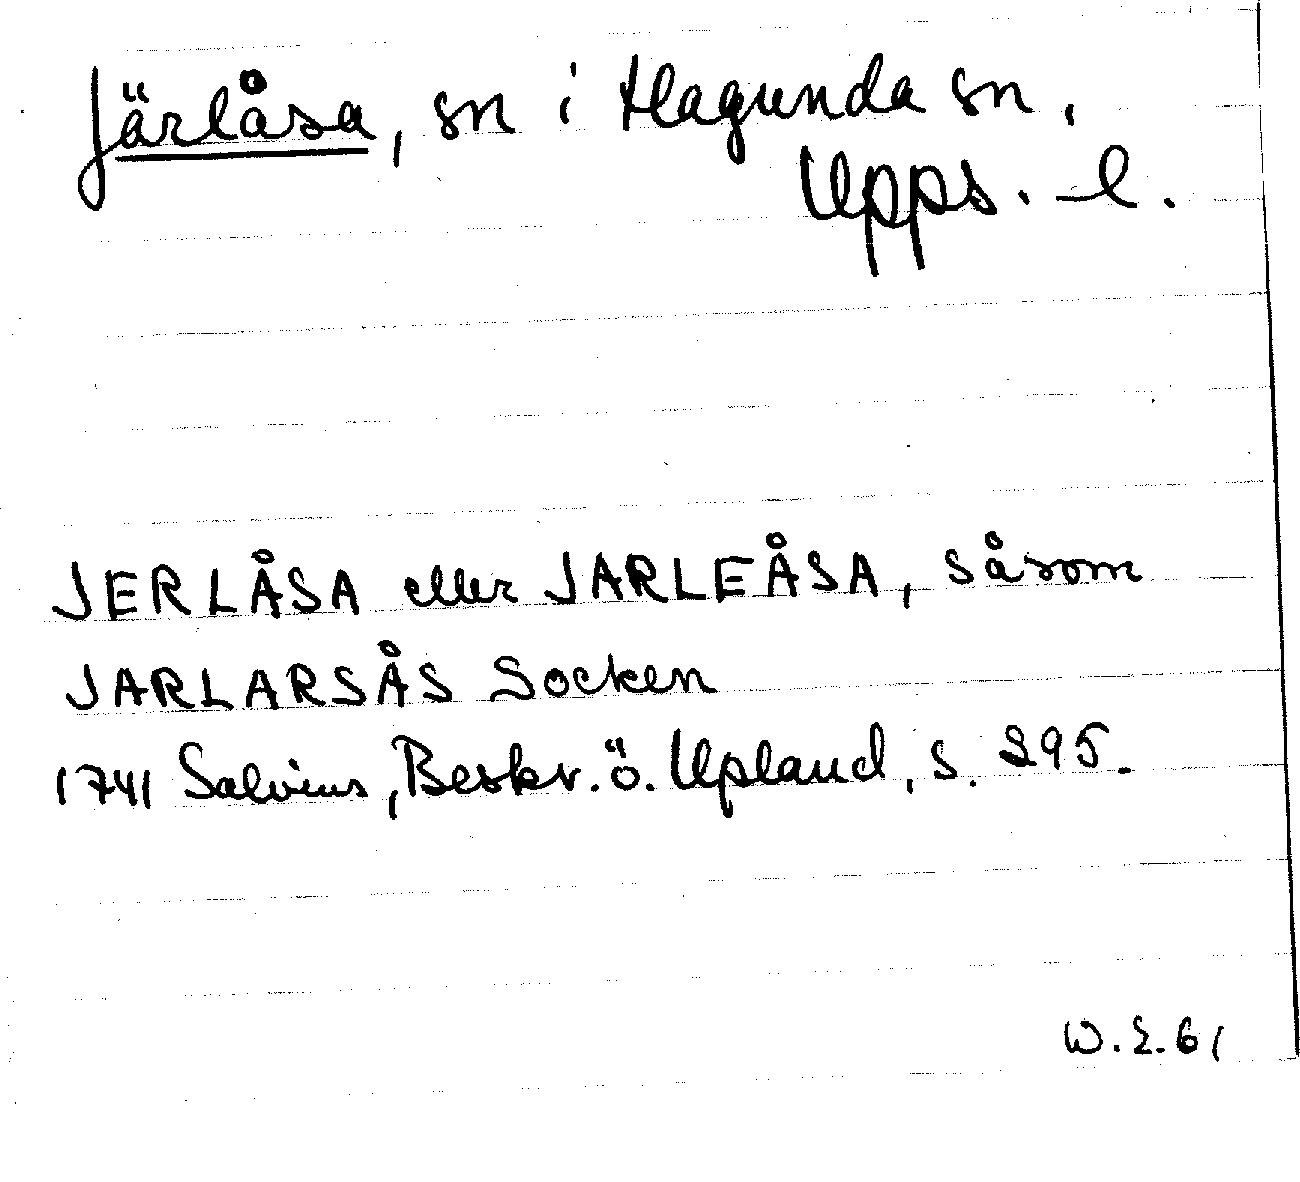 Järlåsa, sn i Hagunda sn,
Upps. l.
JERLÅSA eller JARLEÅSA, såsom
JARLARSÅS Socken
1741 Salvius, Beskr. ö. Upland, s. 295.
W.E.61